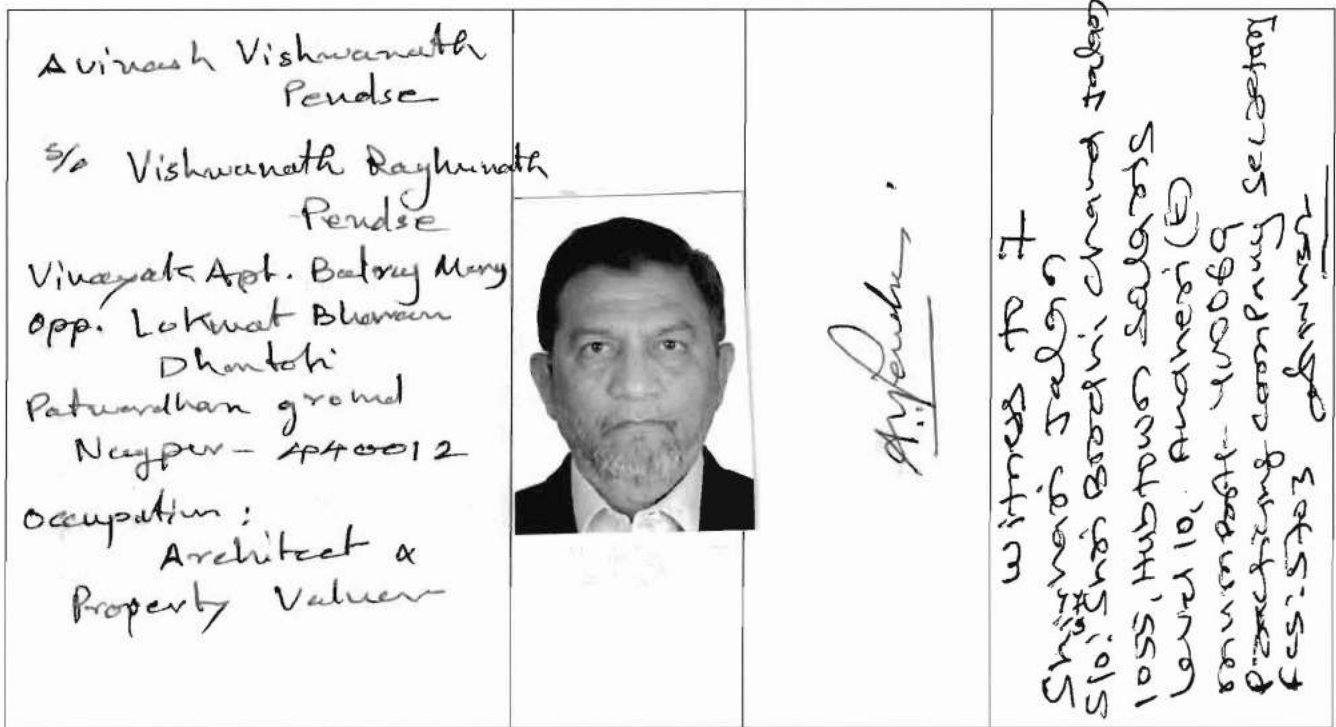 Avinash Vishwanath
Pendse
S/o Vishwanath Raghunath
Pendse
Vinayak Apt. Balraj Marg
Opp. Lokmat Bhavan
Dhantoli
Patwardhan ground
Nagpur - 440012
Occupation:
Architect &
Property Valuer
witness to 7
Jalan
S/o: Shri
1055, Hubtown Solaris
Level 10, Andheri (E)
400069
Practicing company secretary
FCS: 5703